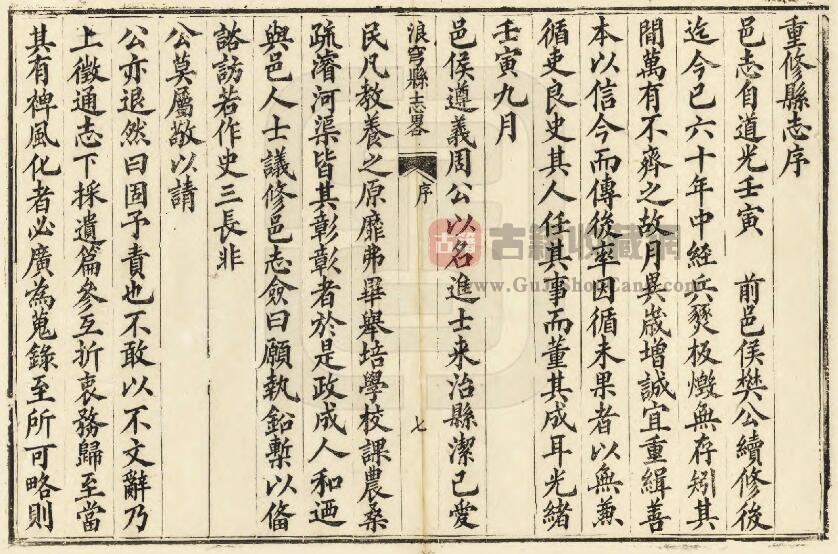 重修縣志序
邑志自道光壬寅　前邑侯樊公續修後
迄今已六十年中經兵燹板燬無存矧其
間萬有不齊之故月異歲增誠宜重緝善
本以信今而傳後率因循未果者以無兼
循吏良史其人任其事而董其成耳光緒
壬寅九月
邑侯遵義周公以名進士來治縣潔己愛
浪穹縣志畧
序
七
民凡教養之原靡弗畢舉培學校課農桑
疏濬河渠皆其彰彰者於是政成人和迺
與邑人士議修邑志僉曰願執鉛槧以俻
諮訪若作史三長非
公莫屬敬以請
公亦退然曰固予責也不敢以不文辭乃
上徵通志下採遺篇參互折衷務歸至當
其有裨風化者必廣為蒐錄至所可略則
古籍
古籍收藏網
www.GuJiShouCang.com